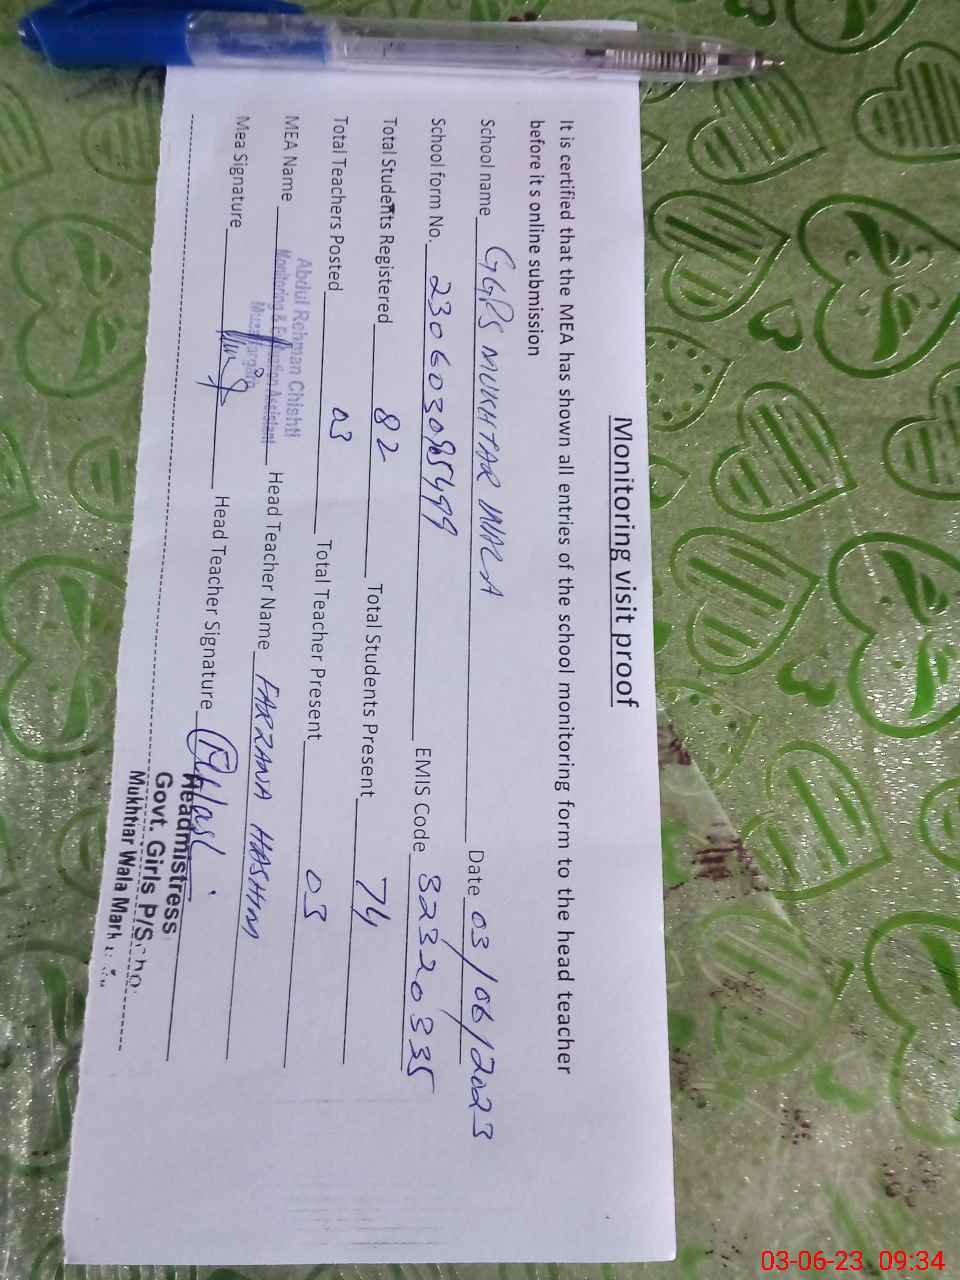 Monitoring visit proof
It is certified that the MEA has shown all entries of the school monitoring form to the head teacher
before it s online submission
School name GGPS MUKHTAR WALA Date 03/06/2023
School form No. EMIS Code 32320335
Total Students Registered 82 Total Students Present 74
Total Teachers Posted 03 Total Teacher Present 03
MEA Name Abdul Rehman Chishti Head Teacher Name FARZANA HASHIM
Monitoring & Evaluation Assistant
Muzaffargarh
Mea Signature Head Teacher Signature
Headmistress
Govt. Girls P/Scho
Mukhtiar Wala Mark
03-06-23 09:34